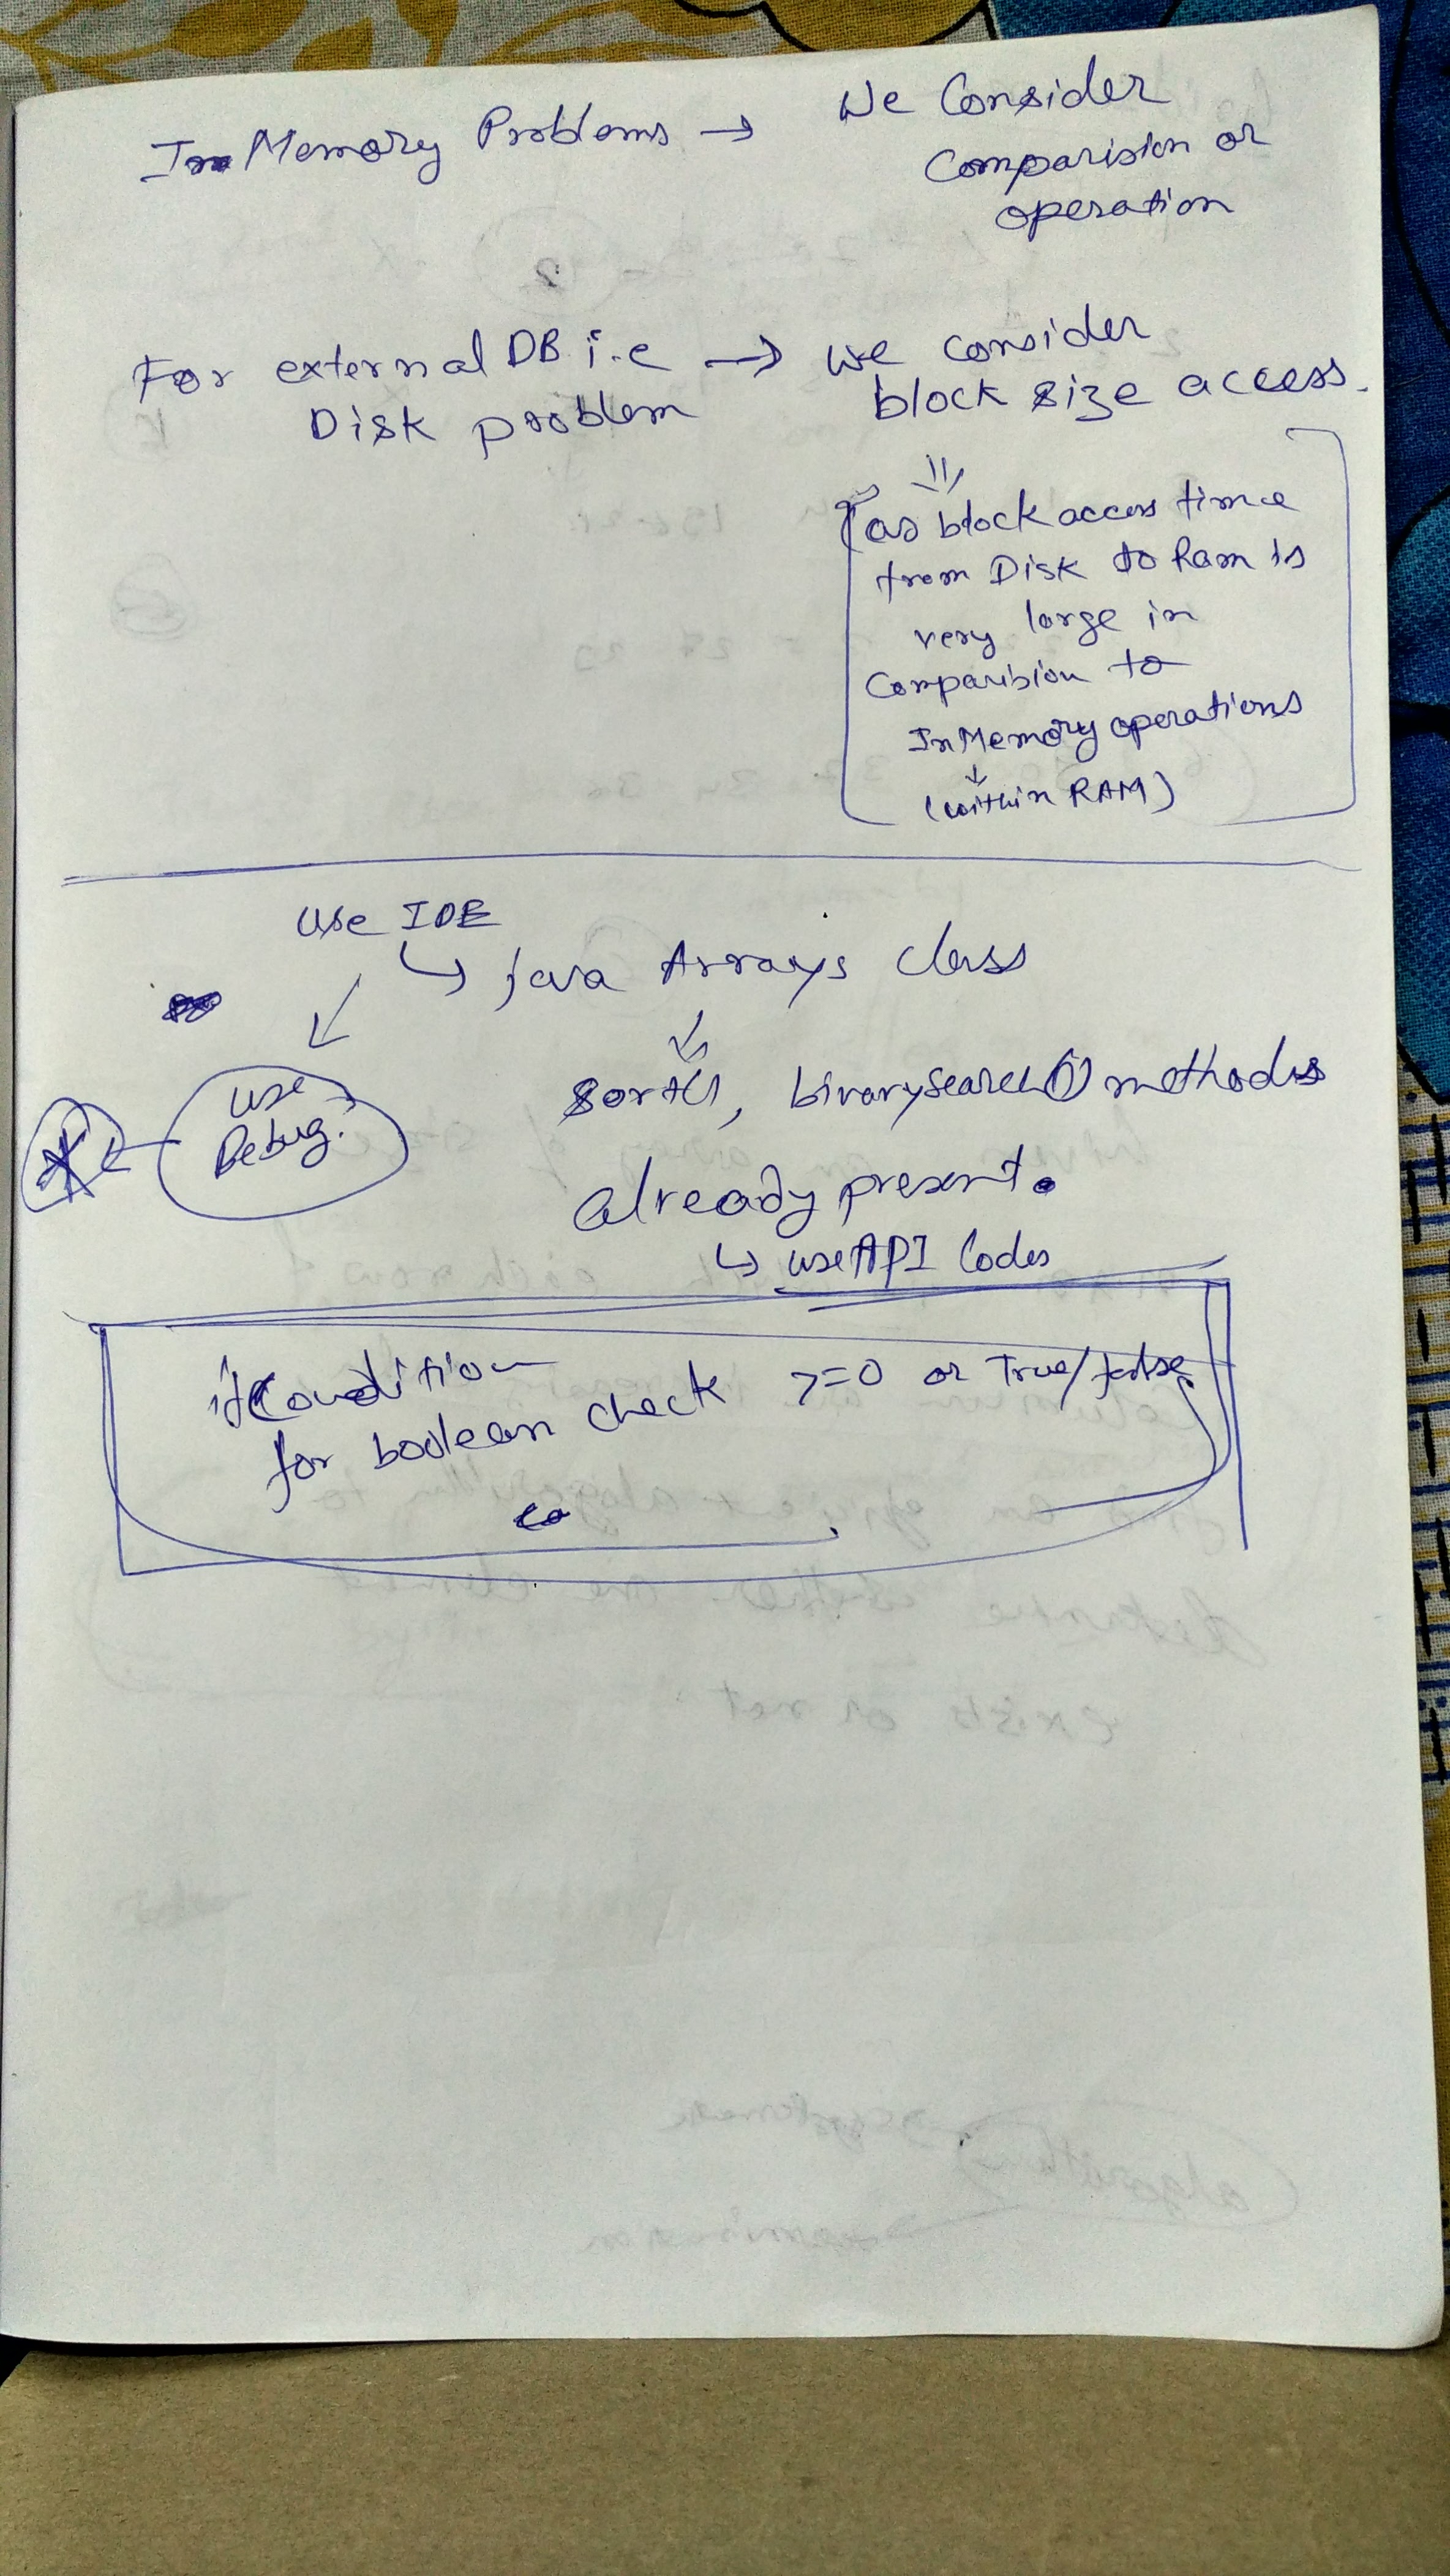 In Memory Problems → We Consider
Comparision or
operation
For external DB i.e → we consider
Disk problem block size access.
as block access time
from Disk to Ram is
very large in
Comparision to
InMemory operations
(within RAM)
Use IDE
↳ java Arrays class
sort(), binarysearch() methods
Use
Debug.
already present.
↳ use API Codes
if Condition
for boolean check >=0 or True/false.